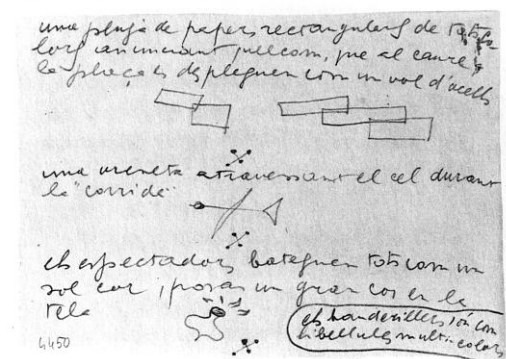 una pluja de papers rectangulars de tots co
lors anunciant quelcom, que al caure a
la plaça es despleguen com un vol d'ocells
una oreneta atravessant el cel durant
la "corrida"
els espectadors bateguen tots com un
sol cor, posar un gran cor en la
tela
els banderillers són com
libellules multi-colors
4450